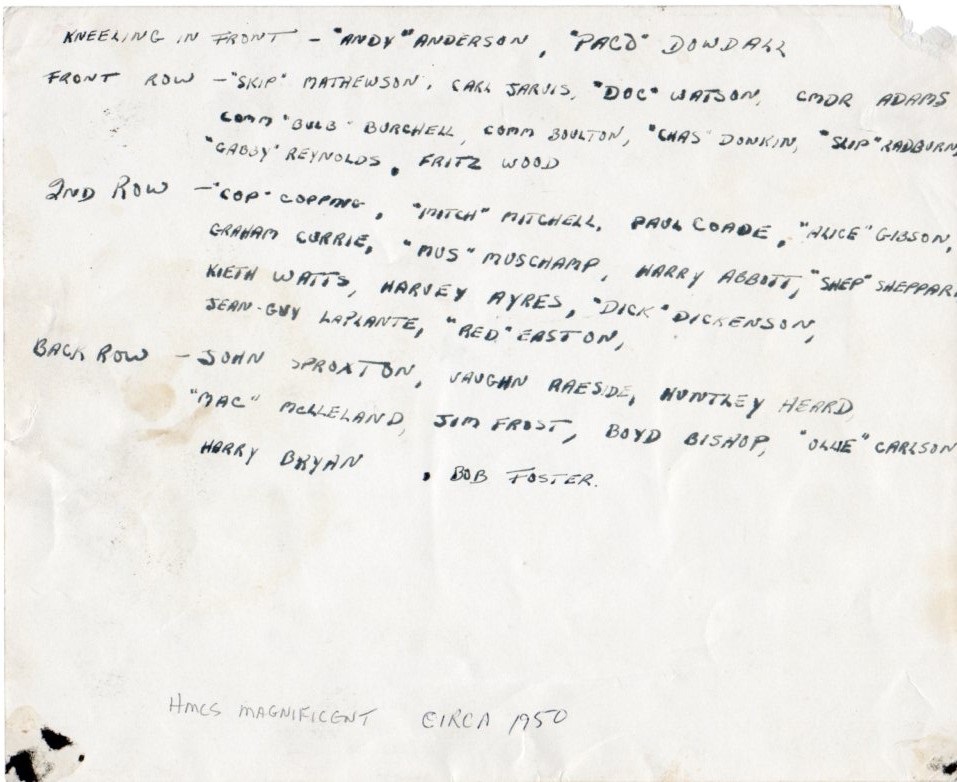 KNEELING IN FRONT - "ANDY" ANDERSON, "PACO" DOWDALL
FRONT ROW - "SKIP" MATHEWSON, CARL JARVIS, "DOC" WATSON, CMDR ADAMS
COMM "BULB" BURCHELL, COMM BOULTON, "CHAS" DONKIN, RADBURN,
"GABBY" REYNOLDS, FRITZ WOOD
2ND ROW - "COP" COPPING, "MITCH" MITCHELL, PAUL COADE, "ALICE" GIBSON,
GRAHAM CURRIE, "MUS" MUSCHAMP, HARRY ABBOTT, "SHEP" SHEPPARD
KIETH WATTS, HARVEY AYRES, "DICK" DICKENSON,
JEAN-GUY LAPLANTE, "RED" EASTON,
BACK ROW - JOHN SPROXTON, VAUGHN RAESIDE, HUNTLEY HEARD,
"MAC" McLLELAND, JIM FROST, BOYD BISHOP, "OLLIE" CARLSON
HARRY BRYAN , BOB FOSTER.
HMCS MAGNIFICENT CIRCA 1950